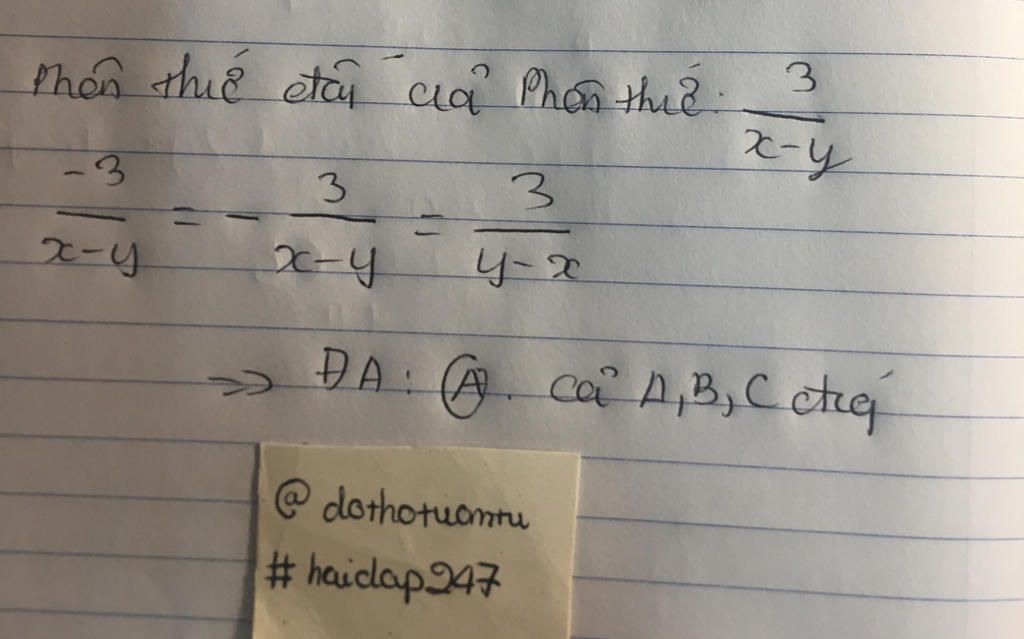 Phân thức đối của Phân thức: 3/(x-y)
-3/(x-y) = - 3/(x-y) = 3/(y-x)
=> ĐA: A. Cả A, B, C
@dothotuantu
#hoidap247